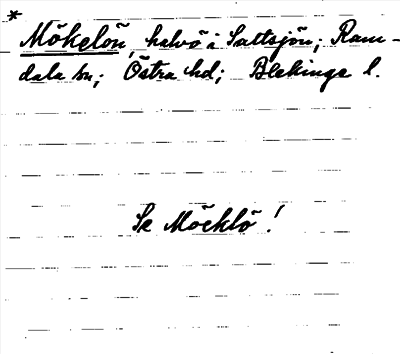 * Mökelön, halvö i Sattsjön; Ram-
dala sn; Östra hd; Blekinge l.
Se Möcklö!